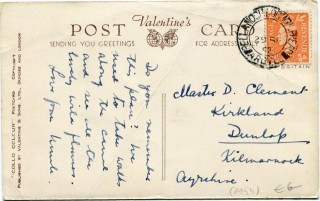 Valentine's
POST CARD
SENDING YOU GREETINGS
FOR ADDRESS
Do you remember
this place? We
used to take walks
along the canal
and see all the
lovely wild flowers.
Love from
Master D. Clement
Kirkland
Dunlop
Kilmarnock
Ayrshire.
(1954)
£6
"COLLO COLOUR" POSTCARD COPYRIGHT
PUBLISHED BY VALENTINE & SONS LTD., DUNDEE AND LONDON